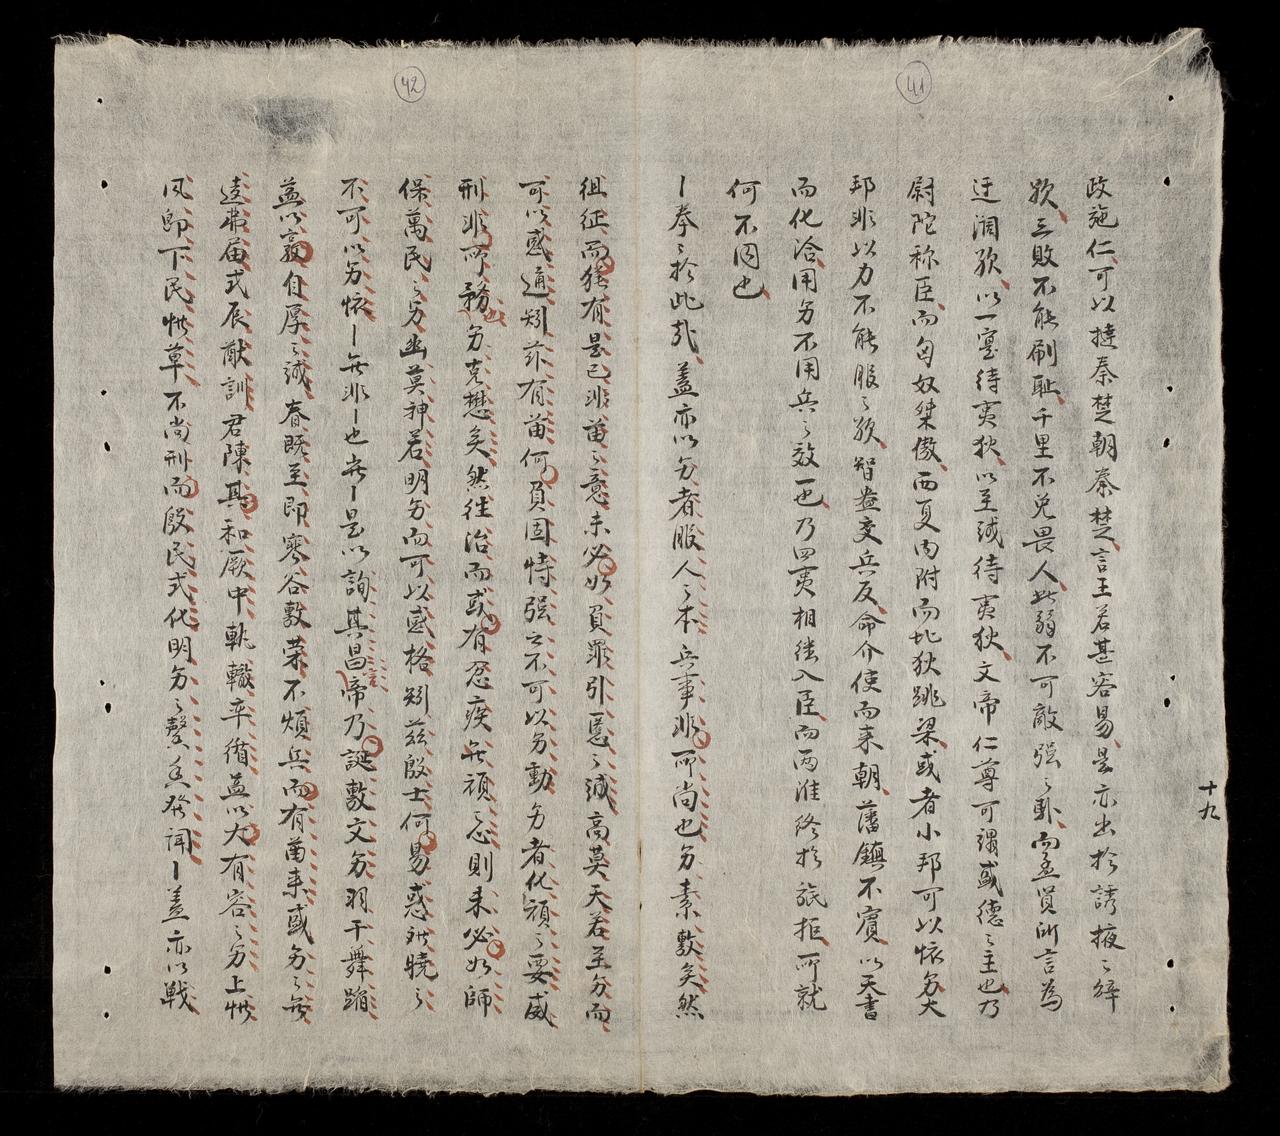 41
42
十九
政施仁可以撻秦楚朝秦楚言王若甚容易是亦出於誘掖之辝
欤三敗不能刷耻千里不免畏人此弱不可敵强之卧而孟贤所言為
迂濶欤以一寔待夷狄以至誠待夷狄文帝仁尊可謂盛德之主也乃
尉陀称臣而匈奴桀傲西夏内附而北狄跳梁或者小邦可以怀另大
邦非以力不能服之欤智盎交兵反命介使而来朝藩鎮不賔以天書
而化洽用另不用兵之效一也乃四夷相継入臣而两淮終於旅拒所就
何不同也
丨拳之於此哉盖亦以另者服人之本兵事非所尚也另素敷矣然
徂征而継有是已非苗之意未必如負罪引慝之誠高莫天若至另而
可以感通矧茲有苗何負固恃强云不可以另動另者化頑之要威
刑非所務另克懋矣然徃治而或有忿疾無頑之忌則未必如師
保萬民之另幽莫神若明另而可以感格矧茲殷士何易惑难曉之
不可以另怀丨無非丨也無丨是以詢其昌言帝乃誕敷文另羽干舞蹈
益以敦自厚之誠春既至即寒谷敷荣不煩兵而有苗来感另之無
逺弗届式辰猷訓君陳其和厥中軌轍率循益以大有容之另上惟
风即下民惟草不尚刑而殷民式化明另之馨香發聞丨盖亦以戰